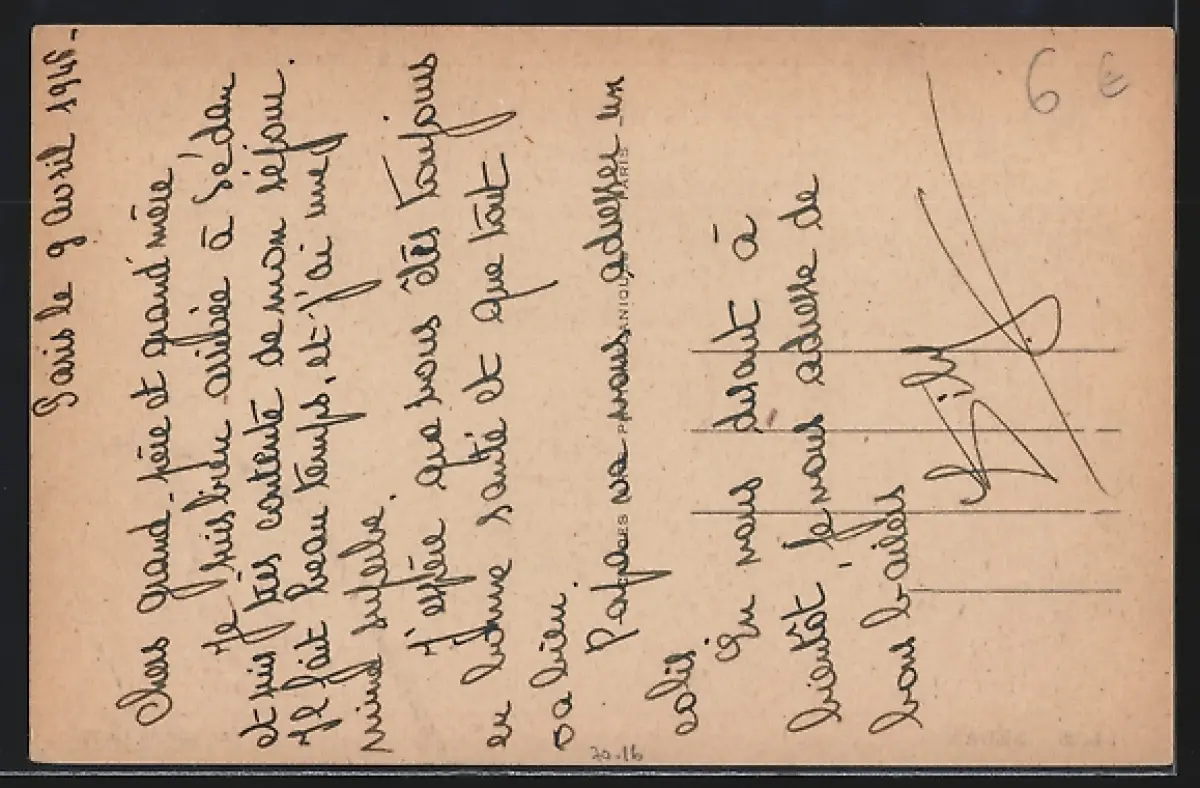 Paris le 9 avril 1946-
Chers grand-père et grand'mère
Je suis bien arrivée à Sédan
et suis très contente de mon séjour.
Il fait beau temps, et j'ai une
mine superbe.
J'espère que vous êtes toujours
en bonne santé et que tout
va bien.
Papa va vous adresser un
colis
En vous disant à
bientôt je vous adresse de
bons baisers
PARIS
6 €